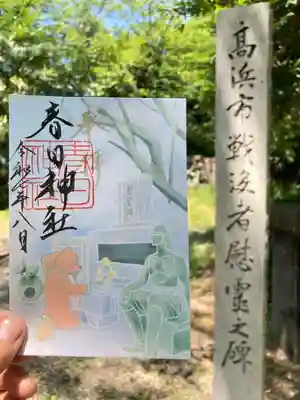 髙浜市戦没者慰霊之碑
奉拝
春日神社
令和七年八月